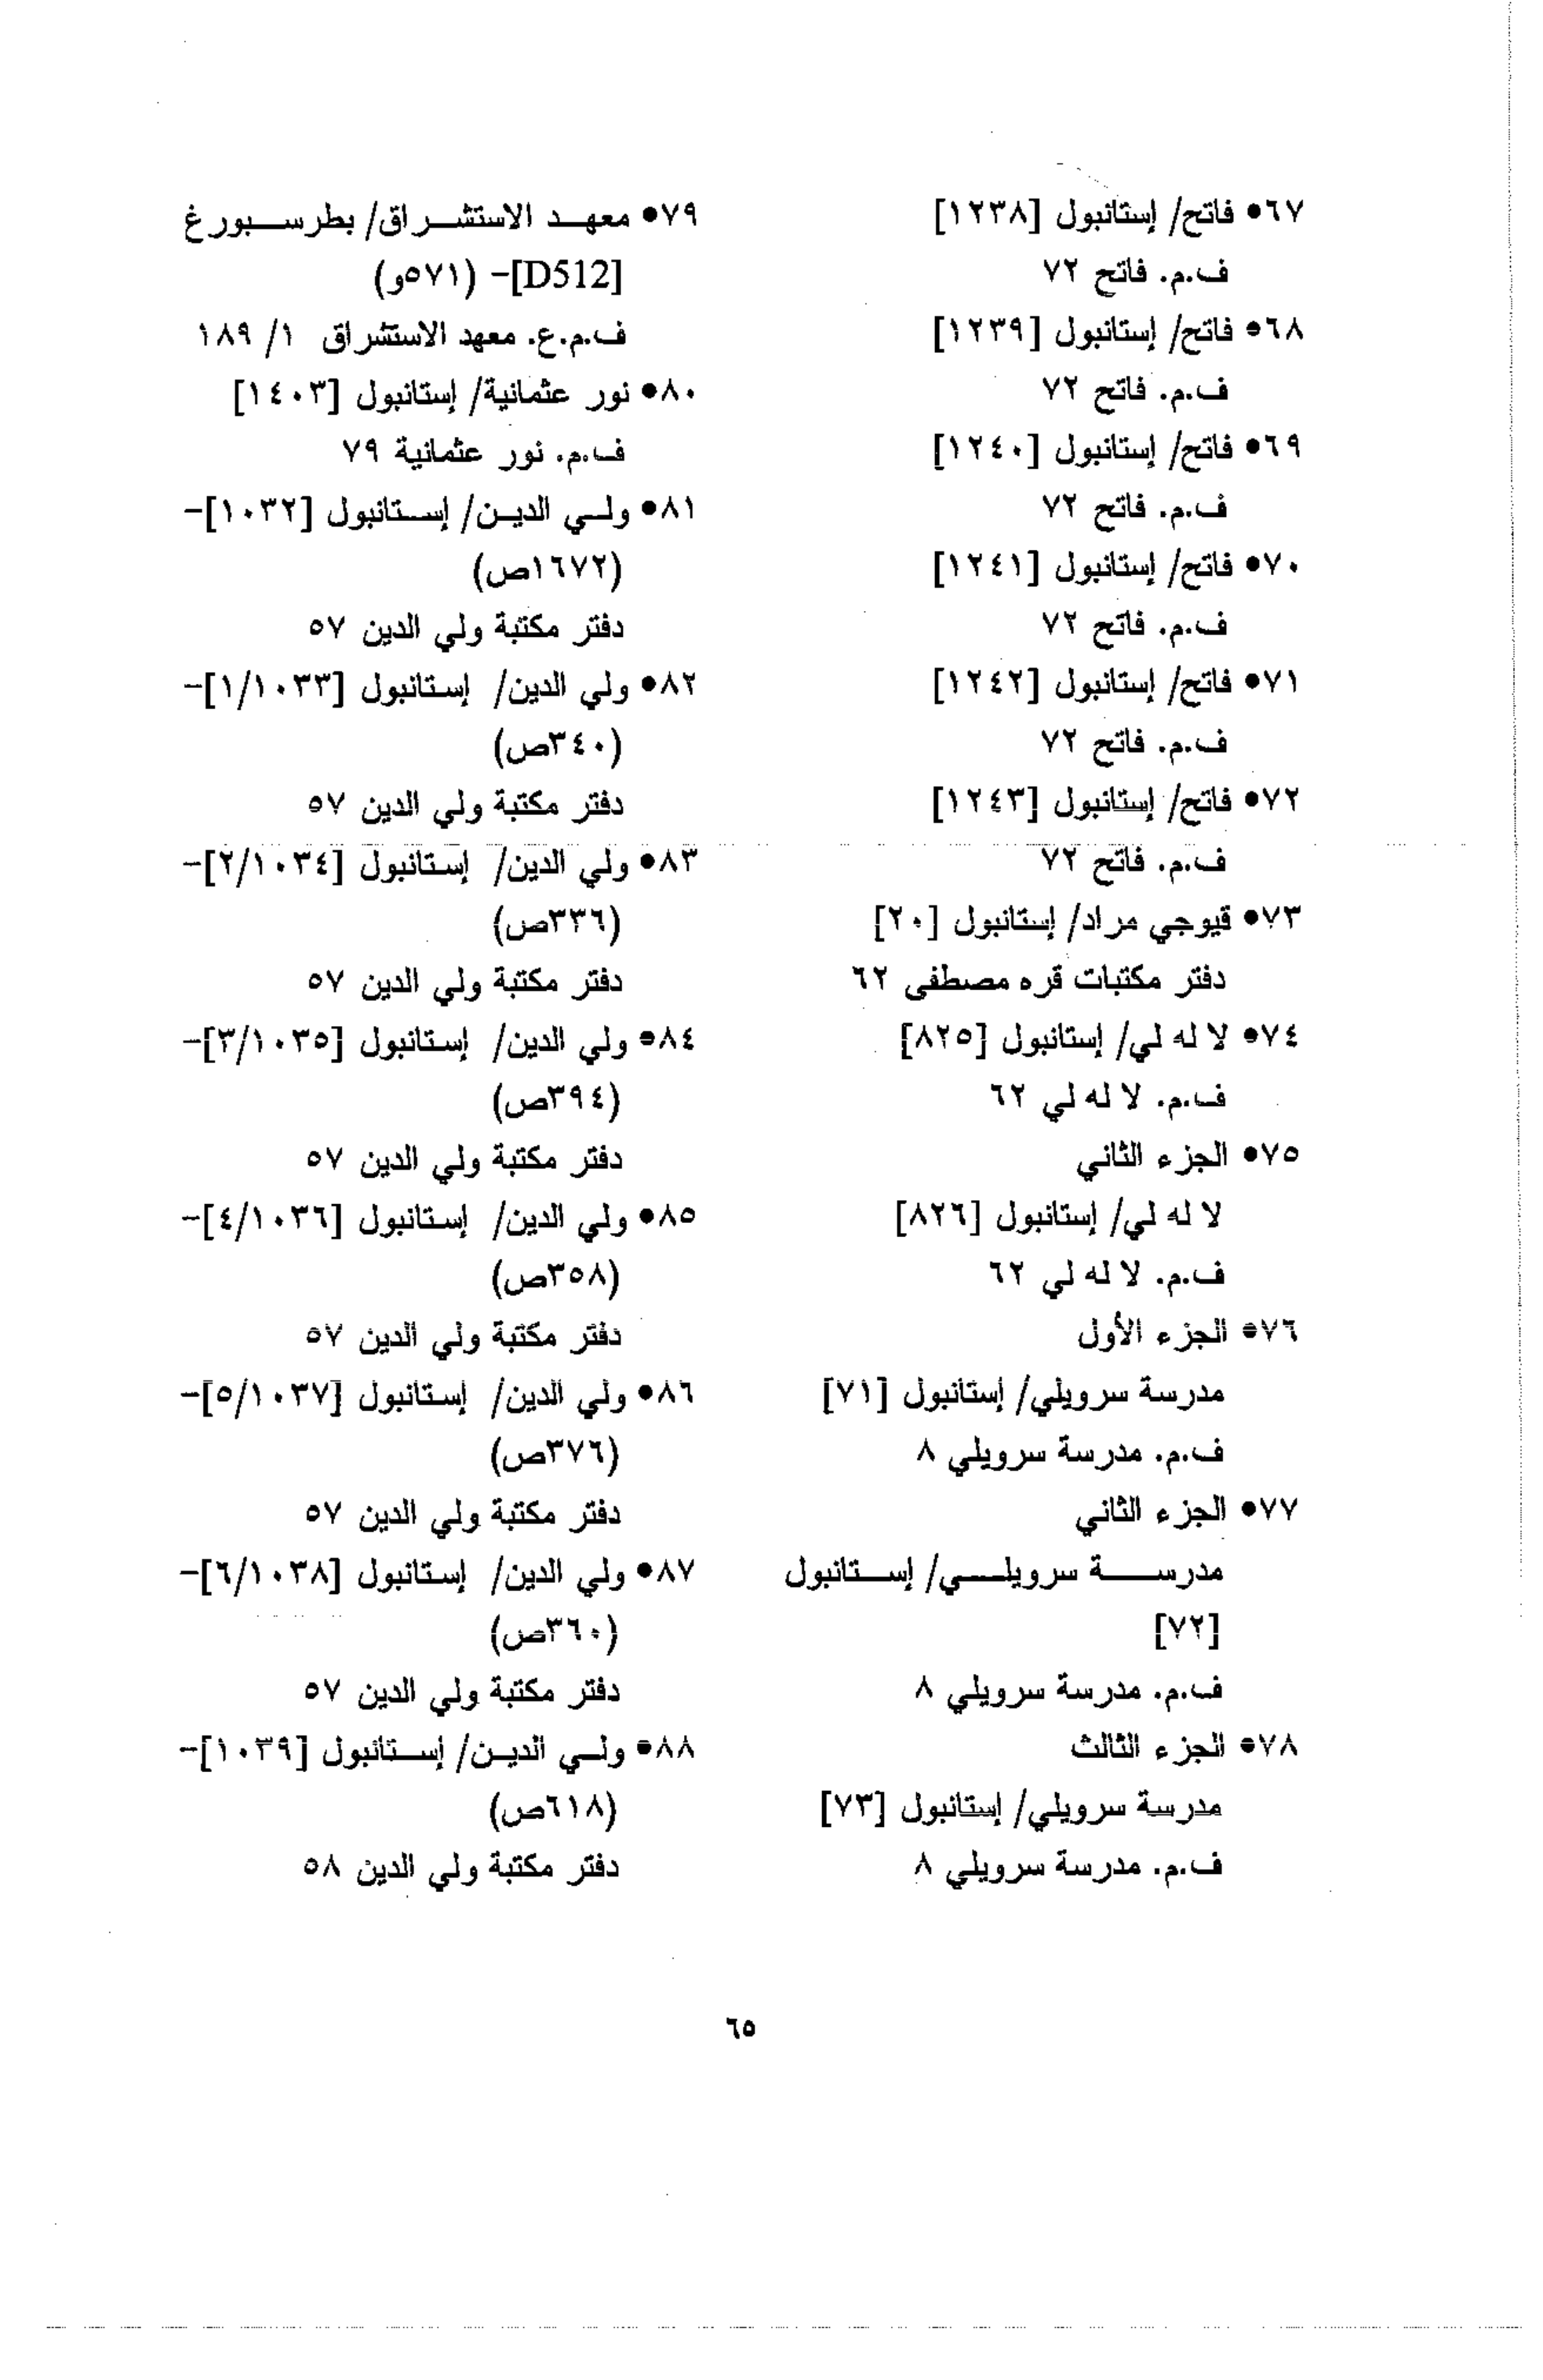 ٦٧• فاتح/ إستانبول [١٢٣٨]
ف.م. فاتح ٧٢
٦٨• فاتح/ إستانبول [١٢٣٩]
ف.م. فاتح ٧٢
٦٩• فاتح/ إستانبول [١٢٤٠]
ف.م. فاتح ٧٢
٧٠• فاتح/ إستانبول [١٢٤١]
ف.م. فاتح ٧٢
٧١• فاتح/ إستانبول [١٢٤٢]
ف.م. فاتح ٧٢
٧٢• فاتح/ إستانبول [١٢٤٣]
ف.م. فاتح ٧٢
٧٣• قيوجي مراد/ إستانبول [٢٠]
دفتر مكتبات قره مصطفى ٦٢
٧٤• لا له لي/ إستانبول [٨٢٥]
ف.م. لا له لي ٦٢
٧٥• الجزء الثاني
لا له لي/ إستانبول [٨٢٦]
ف.م. لا له لي ٦٢
٧٦• الجزء الأول
مدرسة سرويلي/ إستانبول [٧١]
ف.م. مدرسة سرويلي ٨
٧٧• الجزء الثاني
مدرســـة سرويلـــي/ إســتانبول
[٧٢]
ف.م. مدرسة سرويلي ٨
٧٨• الجزء الثالث
مدرسة سرويلي/ إستانبول [٧٣]
ف.م. مدرسة سرويلي ٨
٧٩• معهــد الاستشــراق/ بطرســبورغ
[D512]- (٥٧١و)
ف.م.ع. معهد الاستشراق ١/ ١٨٩
٨٠• نور عثمانية/ إستانبول [١٤٠٣]
ف.م. نور عثمانية ٧٩
٨١• ولـي الديـن/ إسـتانبول [١٠٣٢]-
(١٦٧٢ص)
دفتر مكتبة ولي الدين ٥٧
٨٢• ولي الدين/ إستانبول [١/١٠٣٣]-
(٣٤٠ص)
دفتر مكتبة ولي الدين ٥٧
٨٣• ولي الدين/ إستانبول [٢/١٠٣٤]-
(٣٣٦ص)
دفتر مكتبة ولي الدين ٥٧
٨٤• ولي الدين/ إستانبول [٣/١٠٣٥]-
(٣٩٤ص)
دفتر مكتبة ولي الدين ٥٧
٨٥• ولي الدين/ إستانبول [٤/١٠٣٦]-
(٣٥٨ص)
دفتر مكتبة ولي الدين ٥٧
٨٦• ولي الدين/ إستانبول [٥/١٠٣٧]-
(٣٧٦ص)
دفتر مكتبة ولي الدين ٥٧
٨٧• ولي الدين/ إستانبول [٦/١٠٣٨]-
(٣٦٠ص)
دفتر مكتبة ولي الدين ٥٧
٨٨• ولـي الديـن/ إسـتانبول [١٠٣٩]-
(٦١٨ص)
دفتر مكتبة ولي الدين ٥٨
٦٥